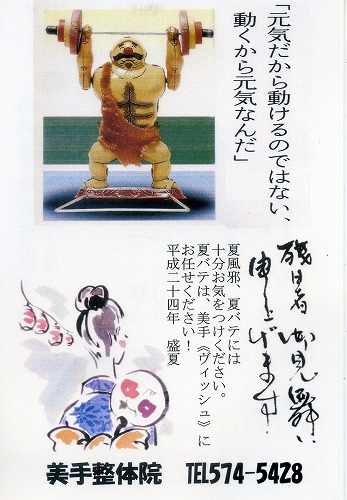 「元気だから動けるのではない、
動くから元気なんだ」
残暑御見舞い
申し上げます
夏風邪、夏バテには
十分お気をつけください。
夏バテは、美手《ヴィッシュ》に
お任せください！
平成二十四年　盛夏
美手整体院　TEL574-5428